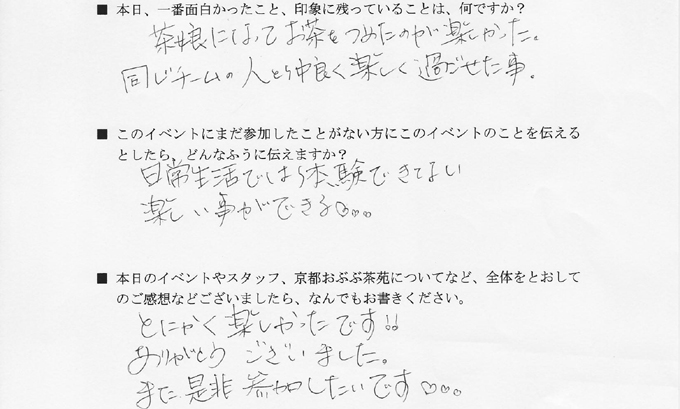 ■ 本日、一番面白かったこと、印象に残っていることは、何ですか？
茶娘になってお茶をつめたのが楽しかった。
同じチームの人とも仲良く楽しく過ごせた事。
■ このイベントにまだ参加したことがない方にこのイベントのことを伝える
としたら、どんなふうに伝えますか？
日常生活では体験できない
楽しい事ができる♡。。。
■ 本日のイベントやスタッフ、京都おぶぶ茶苑についてなど、全体をとおして
のご感想などございましたら、なんでもお書きください。
とにかく楽しかったです!!
ありがとう ございました。
また是非 参加したいです♡♡。。。